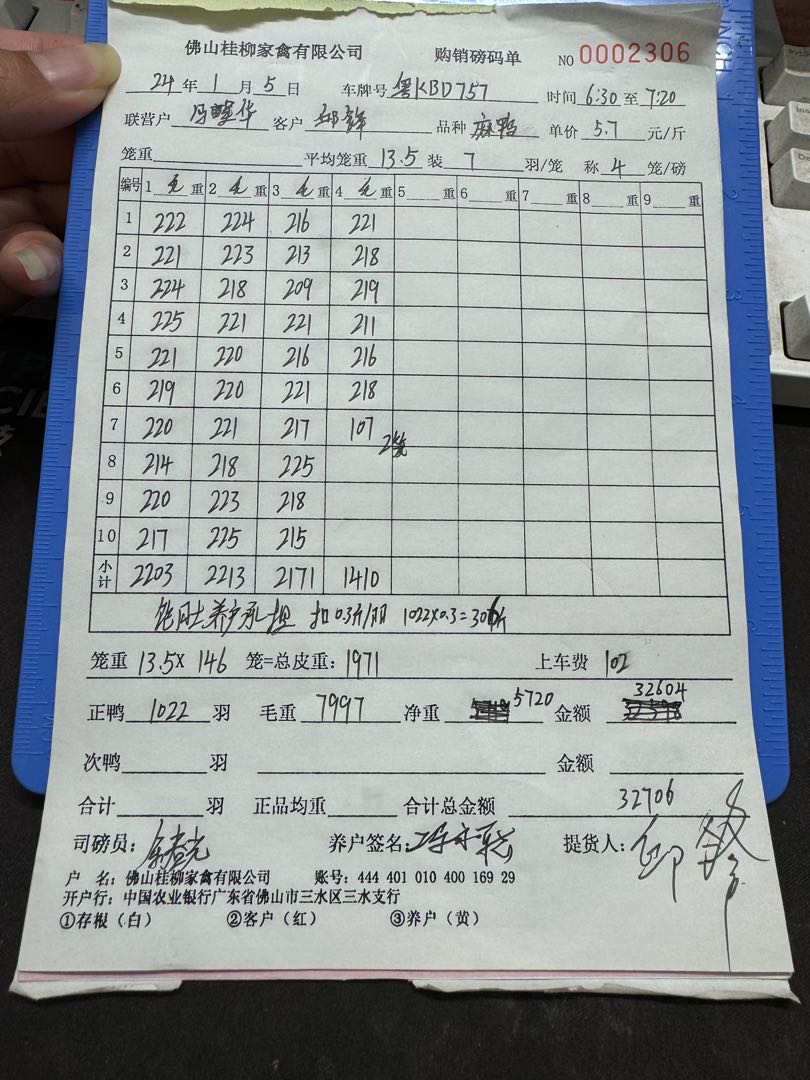 佛山桂柳家禽有限公司 购销磅码单 NO 0002306
24 年 1 月 5 日 车牌号 粤KBD757 时间 6:30 至 7:20
联营户 客户 邱锋 品种 麻鸭 单价 5.7 元/斤
笼重 平均笼重 13.5 装 7 羽/笼 称 4 笼/磅
编号 1 毛 重 2 毛 重 3 毛 重 4 毛 重 5 重 6 重 7 重 8 重 9 重
1 222 224 216 221
2 221 223 213 218
3 224 218 209 219
4 225 221 221 211
5 221 220 216 216
6 219 220 221 218
7 220 221 217 107 2笼
8 214 218 225
9 220 223 218
10 217 225 215
小计 2203 2213 2171 1410
养户承担 扣0.3斤/羽 1022×0.3=306斤
笼重 13.5× 146 笼=总皮重: 1971 上车费 102
正鸭 1022 羽 毛重 7997 净重 5720 金额 32604
次鸭 羽 金额
合计 羽 正品均重 合计总金额 32706
司磅员: 养户签名: 提货人: 邱锋
户 名: 佛山桂柳家禽有限公司 账号: 444 401 010 400 169 29
开户行: 中国农业银行广东省佛山市三水区三水支行
①存根（白） ②客户（红） ③养户（黄）